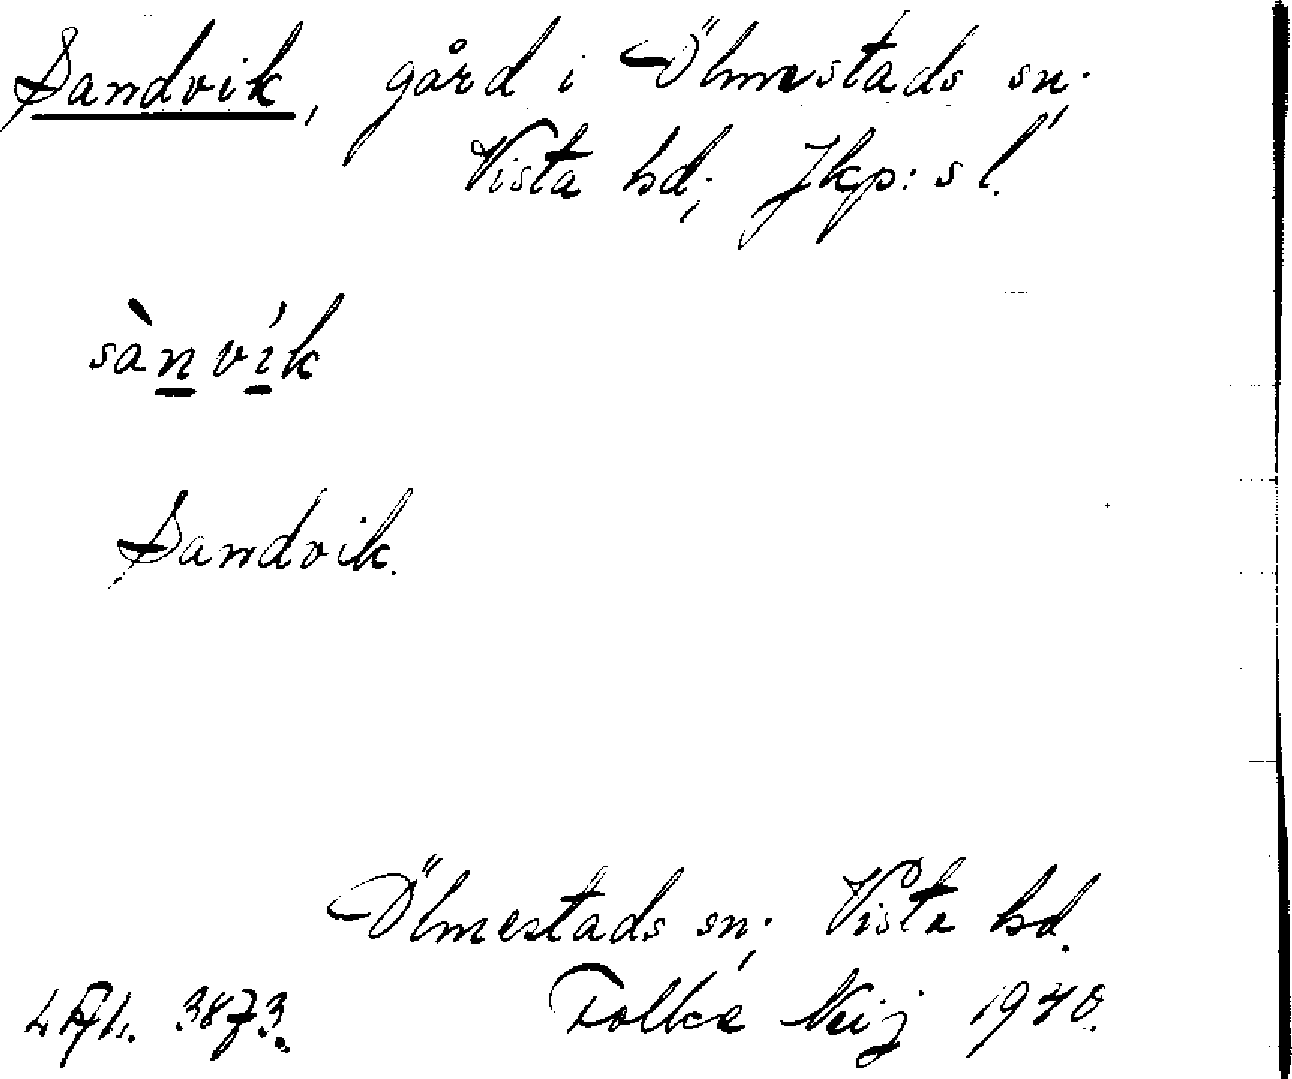 Sandvik, gård i Ölmestads sn;
Vista hd; Jkp:s l.
sànvík
Sandvik.
Ölmestads sn; Vista hd.
3873. Folke Neij 1940.